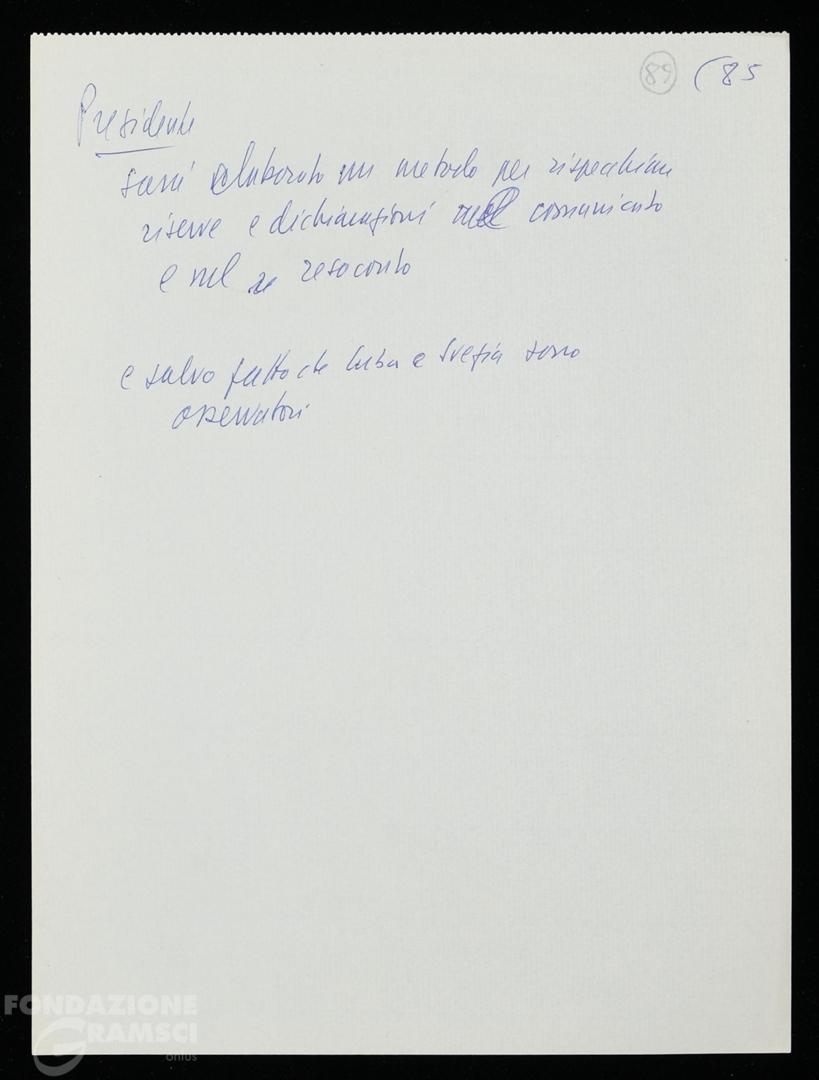 89 (85
Presidente
sarà elaborato un metodo per rispecchiare
riserve e dichiarazioni nel comunicato
e nel re resoconto
e salvo fatto che Cuba e Svezia sono
osservatori
FONDAZIONE
GRAMSCI
onlus